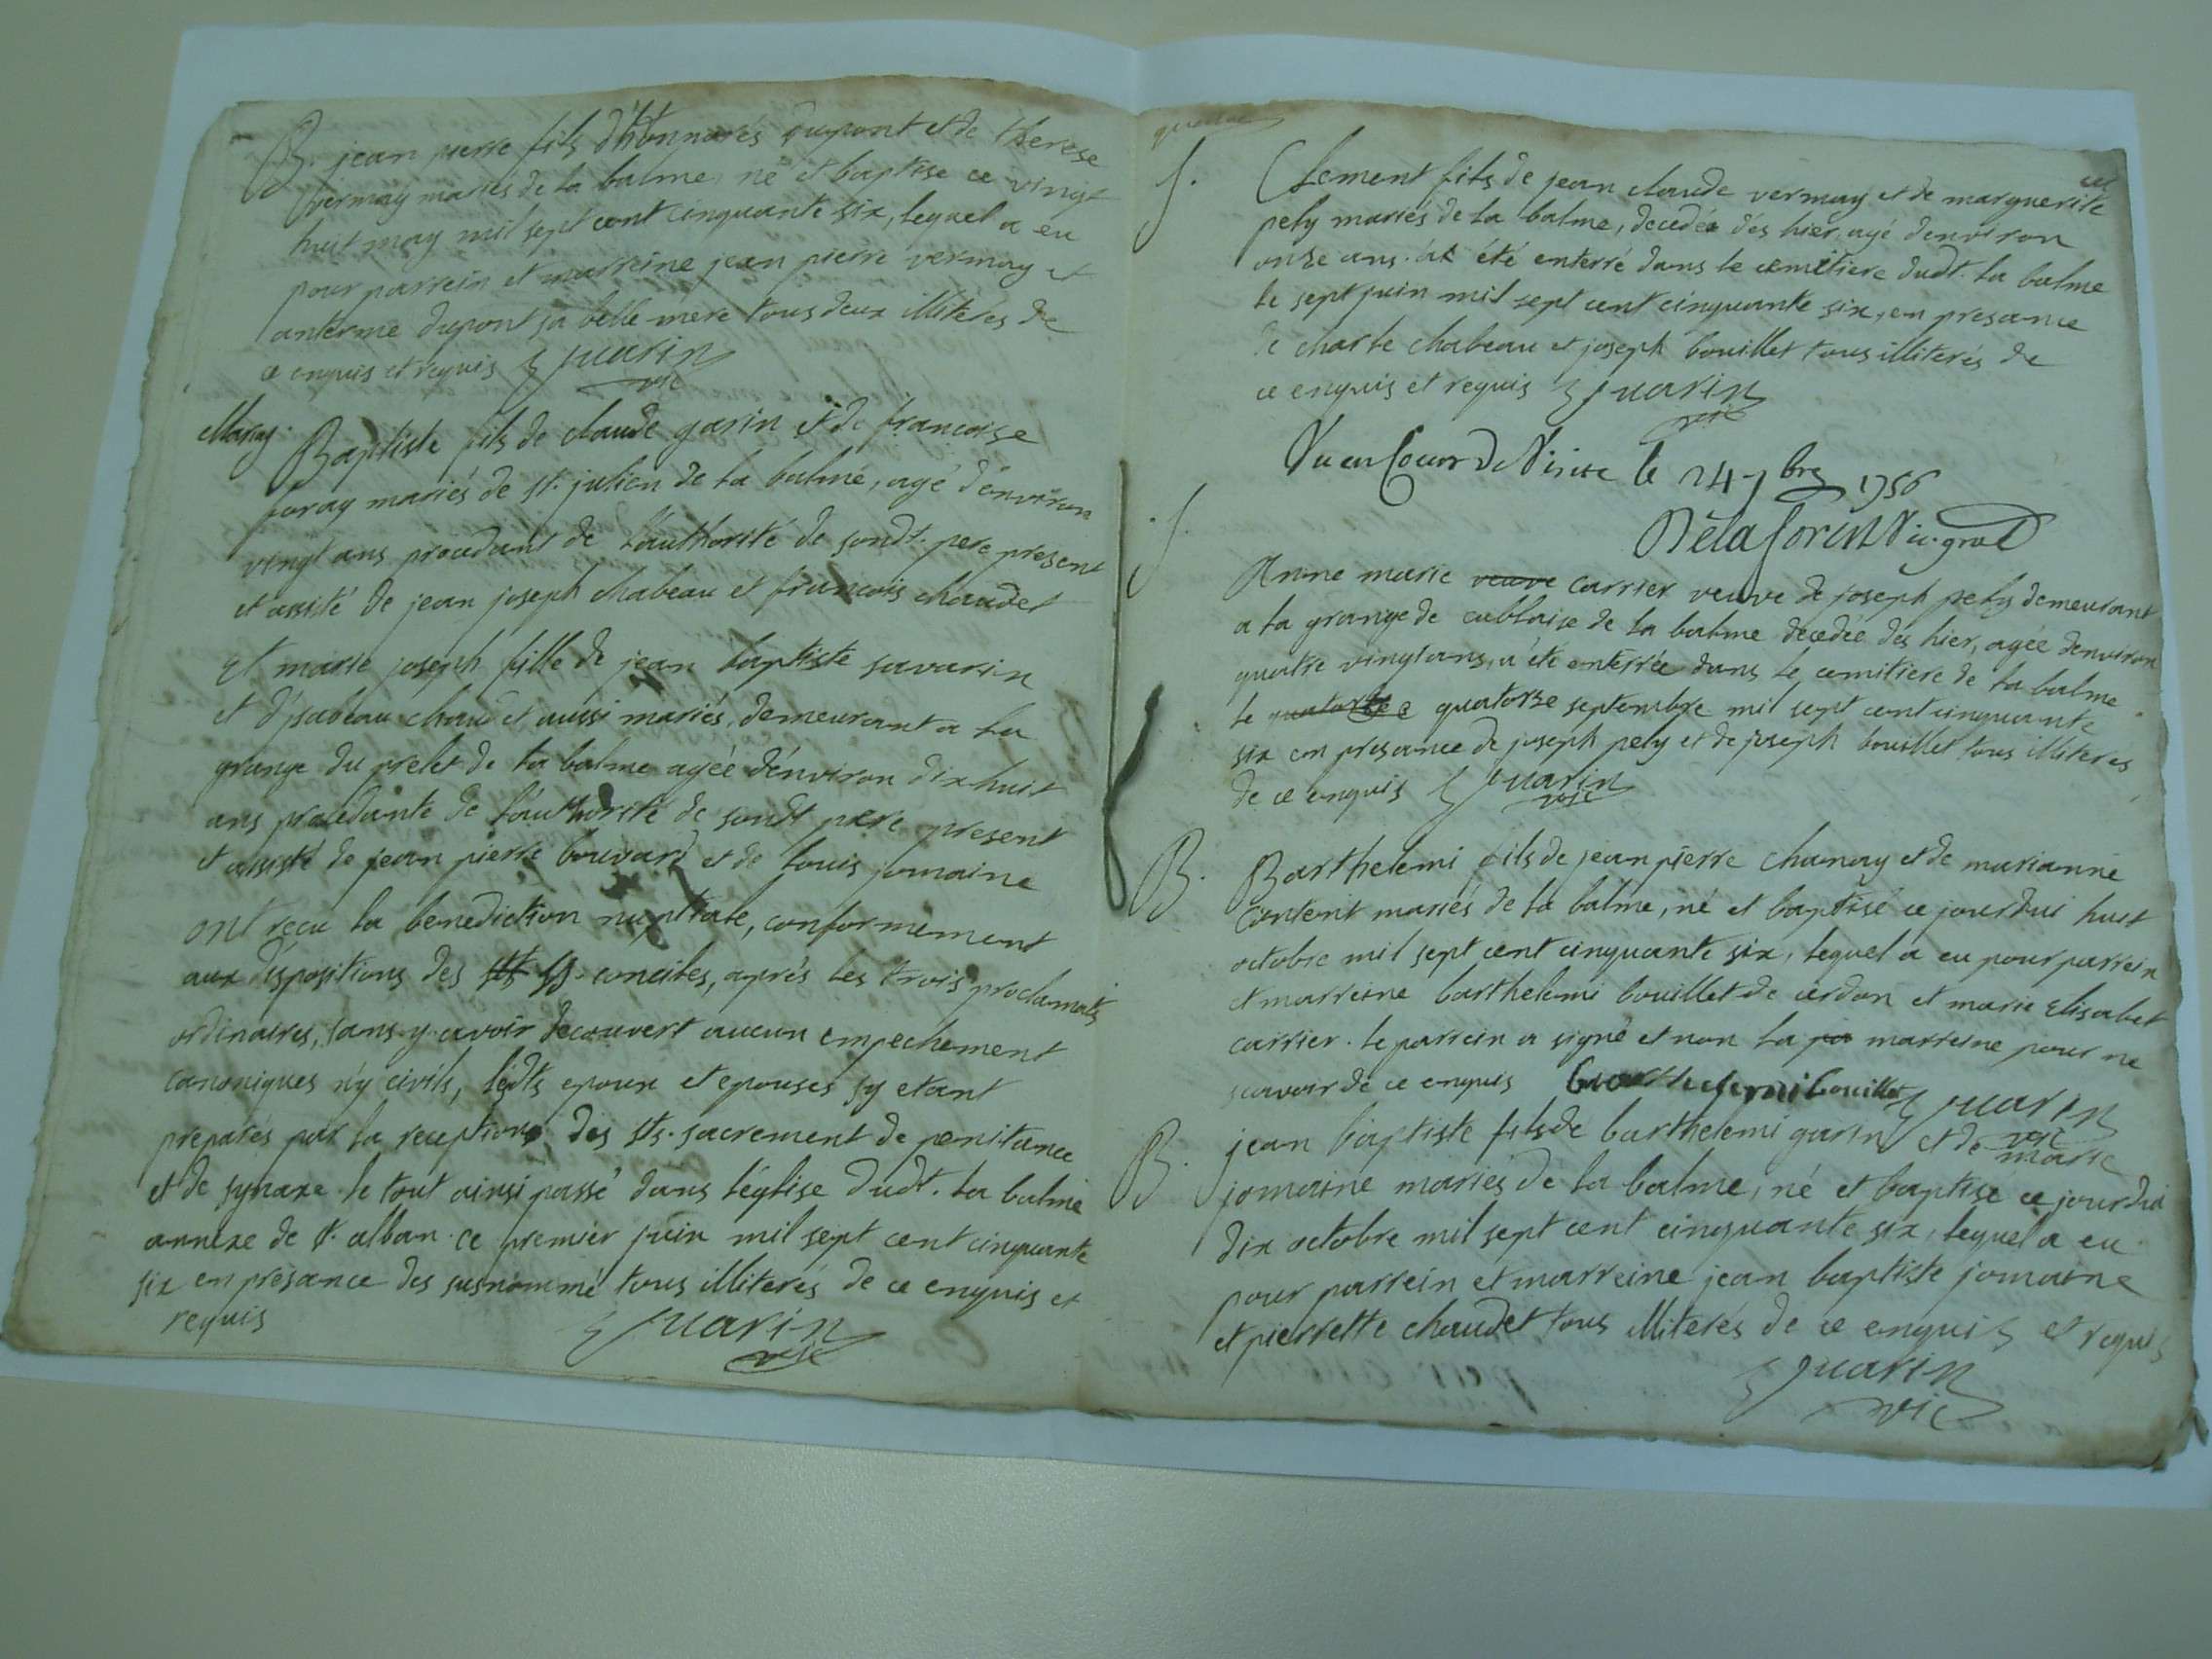 B. jean pierre fils d'honnorés dupont et de therese
vermay mariés de la balme, né et baptise ce vingt
huit may mil sept cent cinquante six, lequel a eu
pour parrein et marreine jean pierre vermay et
anterme dupont sa belle-mere tous deux illiterés de
ce enquis et requis Guarin
vic
Mariag. Baptiste fils de claude garin et de francoise
foray mariés de st. julien de la balme, agé d'environ
vingt ans procedant de l'authorité de sondt. pere present
et assité de jean joseph chabeau et francois chaudet
Et marie joseph fille de jean baptiste savarin
et d'ysabeau chaudet aussi mariés, demeurant a la
grange du prelet de la balme agéé d'environ dix huit
ans procedante de l'authorité de sondt pere present
et assisté de jean pierre bouvard et de louis jomaine
ont recu la benediction nuptiale, conformement
aux dispositions des sts ss. conciles, aprés les trois proclamats
ordinaires, sans y avoir decouvert aucun empechement
canoniques n'y civils, lesdts epoux et epouses sy etant
preparés par la reception des sts. sacrement de penitance
et de synaxe le tout ainsi passé dans l'église dudt. la balme
annexe de st. alban ce premier juin mil sept cent cinquante
six en presance des susnommé tous illiterés de ce enquis et
requis Guarin
vic
S. Clement fils de jean claude vermay et de marguerite
pely mariés de la balme, decedé dés hier, agé d'environ
onze ans. at été enterré dans le cemetiere dudt. la balme
le sept juin mil sept cent cinquante six, en presance
de charle chabeau et joseph bouillet tous illiterés de
ce enquis et requis Guarin
vic
Vu en Cours de Visite le 24 7bre 1756
Delaforest Vic. gral
S. Anne marie veuve carrier veuve de joseph pely demeurant
a la grange de cublaise de la balme decedée dés hier, agée d'environ
quatre vingt ans, a été enterrée dans le cemitiere de la balme
le quatorze quatorze septembre mil sept cent cinquante
six en presance de joseph pely et de joseph bouillet tous illiterés
de ce enquis Guarin
vic
B. Barthelemi fils de jean pierre chanay et de marianne
content mariés de la balme, né et baptisé ce jourdui huit
octobre mil sept cent cinquante six, lequel a eu pour parrein
et marreine barthelemi bouillet de cerdon et marie Elisabet
carrier. le parrein a signé et non la pa marreine pour ne
scavoir de ce enquis barthelemi bouillet Guarin
vic
B. jean baptiste fils de barthelemi garin et de marie
jomaine mariés de la balme, né et baptise ce jourdui
dix octobre mil sept cent cinquante six, lequel a eu
pour parrein et marreine jean baptiste jomaine
et pierrette chaudet tous illiterés de ce enquis et requis
Guarin
vic